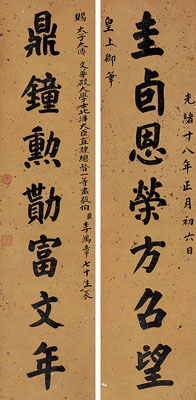 光緒十八年正月初六日
圭卣恩榮方召望
皇上御筆
賜太子太傅文華殿大學士北洋大臣直隸總督一等肅毅伯臣李鴻章七十生辰
鼎鐘勳勩富文年